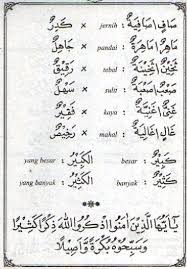 صَافٍ صَافِيَةٌ : jernih × كَدِرٌ
مَاهِرٌ مَاهِرَةٌ : pandai × جَاهِلٌ
ثَخِيْنٌ ثَخِيْنَةٌ : tebal × رَقِيْقٌ
صَعْبٌ صَعْبَةٌ : sulit × سَهْلٌ
غَنِيٌّ غَنِيَّةٌ : kaya × فَقِيْرٌ
غَالٍ غَالِيَةٌ : mahal × رَخِيْصٌ
كَبِيْرٌ : besar الْكَبِيْرُ : yang besar
كَثِيْرٌ : banyak الْكَثِيْرُ : yang banyak
يَآيُّهَا الَّذِيْنَ اٰمَنُوا اذْكُرُوا اللّٰهَ ذِكْرًا كَثِيْرًا
وَسَبِّحُوْهُ بُكْرَةً وَاَصِيْلًا